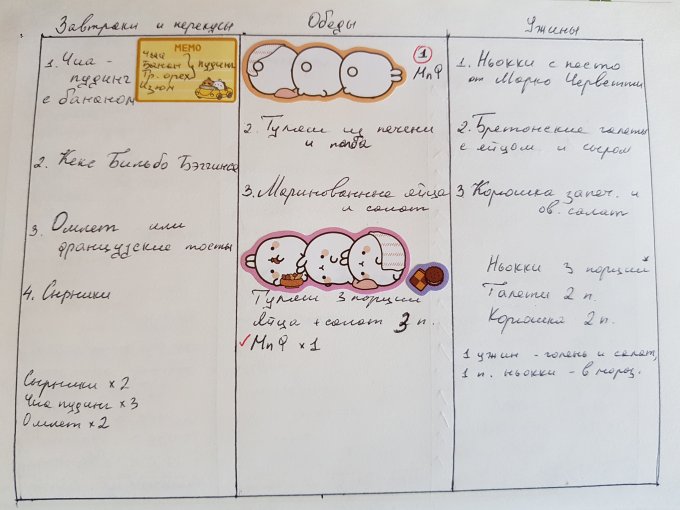 Завтраки и перекусы
Обеды
Ужины
1. Чиа -
пудинг
с бананом
MEMO
Чиа
Банан
Гр. орех
Изюм
} пудинг
2. Кекс Бильбо Бэггинса
3. Омлет или
французские тосты
4. Сырники
Сырники x 2
Чиа пудинг x 3
Омлет x 2
1
МпФ
2. Гуляш из печени
и полба
3. Маринованные яйца
и салат
Гуляш 3 порции
Яйца + салат 3 п.
✓ МпФ x 1
1. Ньокки с песто
от Марко Черветти
2. Бретонские галеты
с яйцом и сыром
3 Корюшка запеч. и
ов. салат
Ньокки 3 порции*
Галеты 2 п.
Корюшка 2 п.
1 ужин - голень и салат,
1 п. ньокки - в мороз.